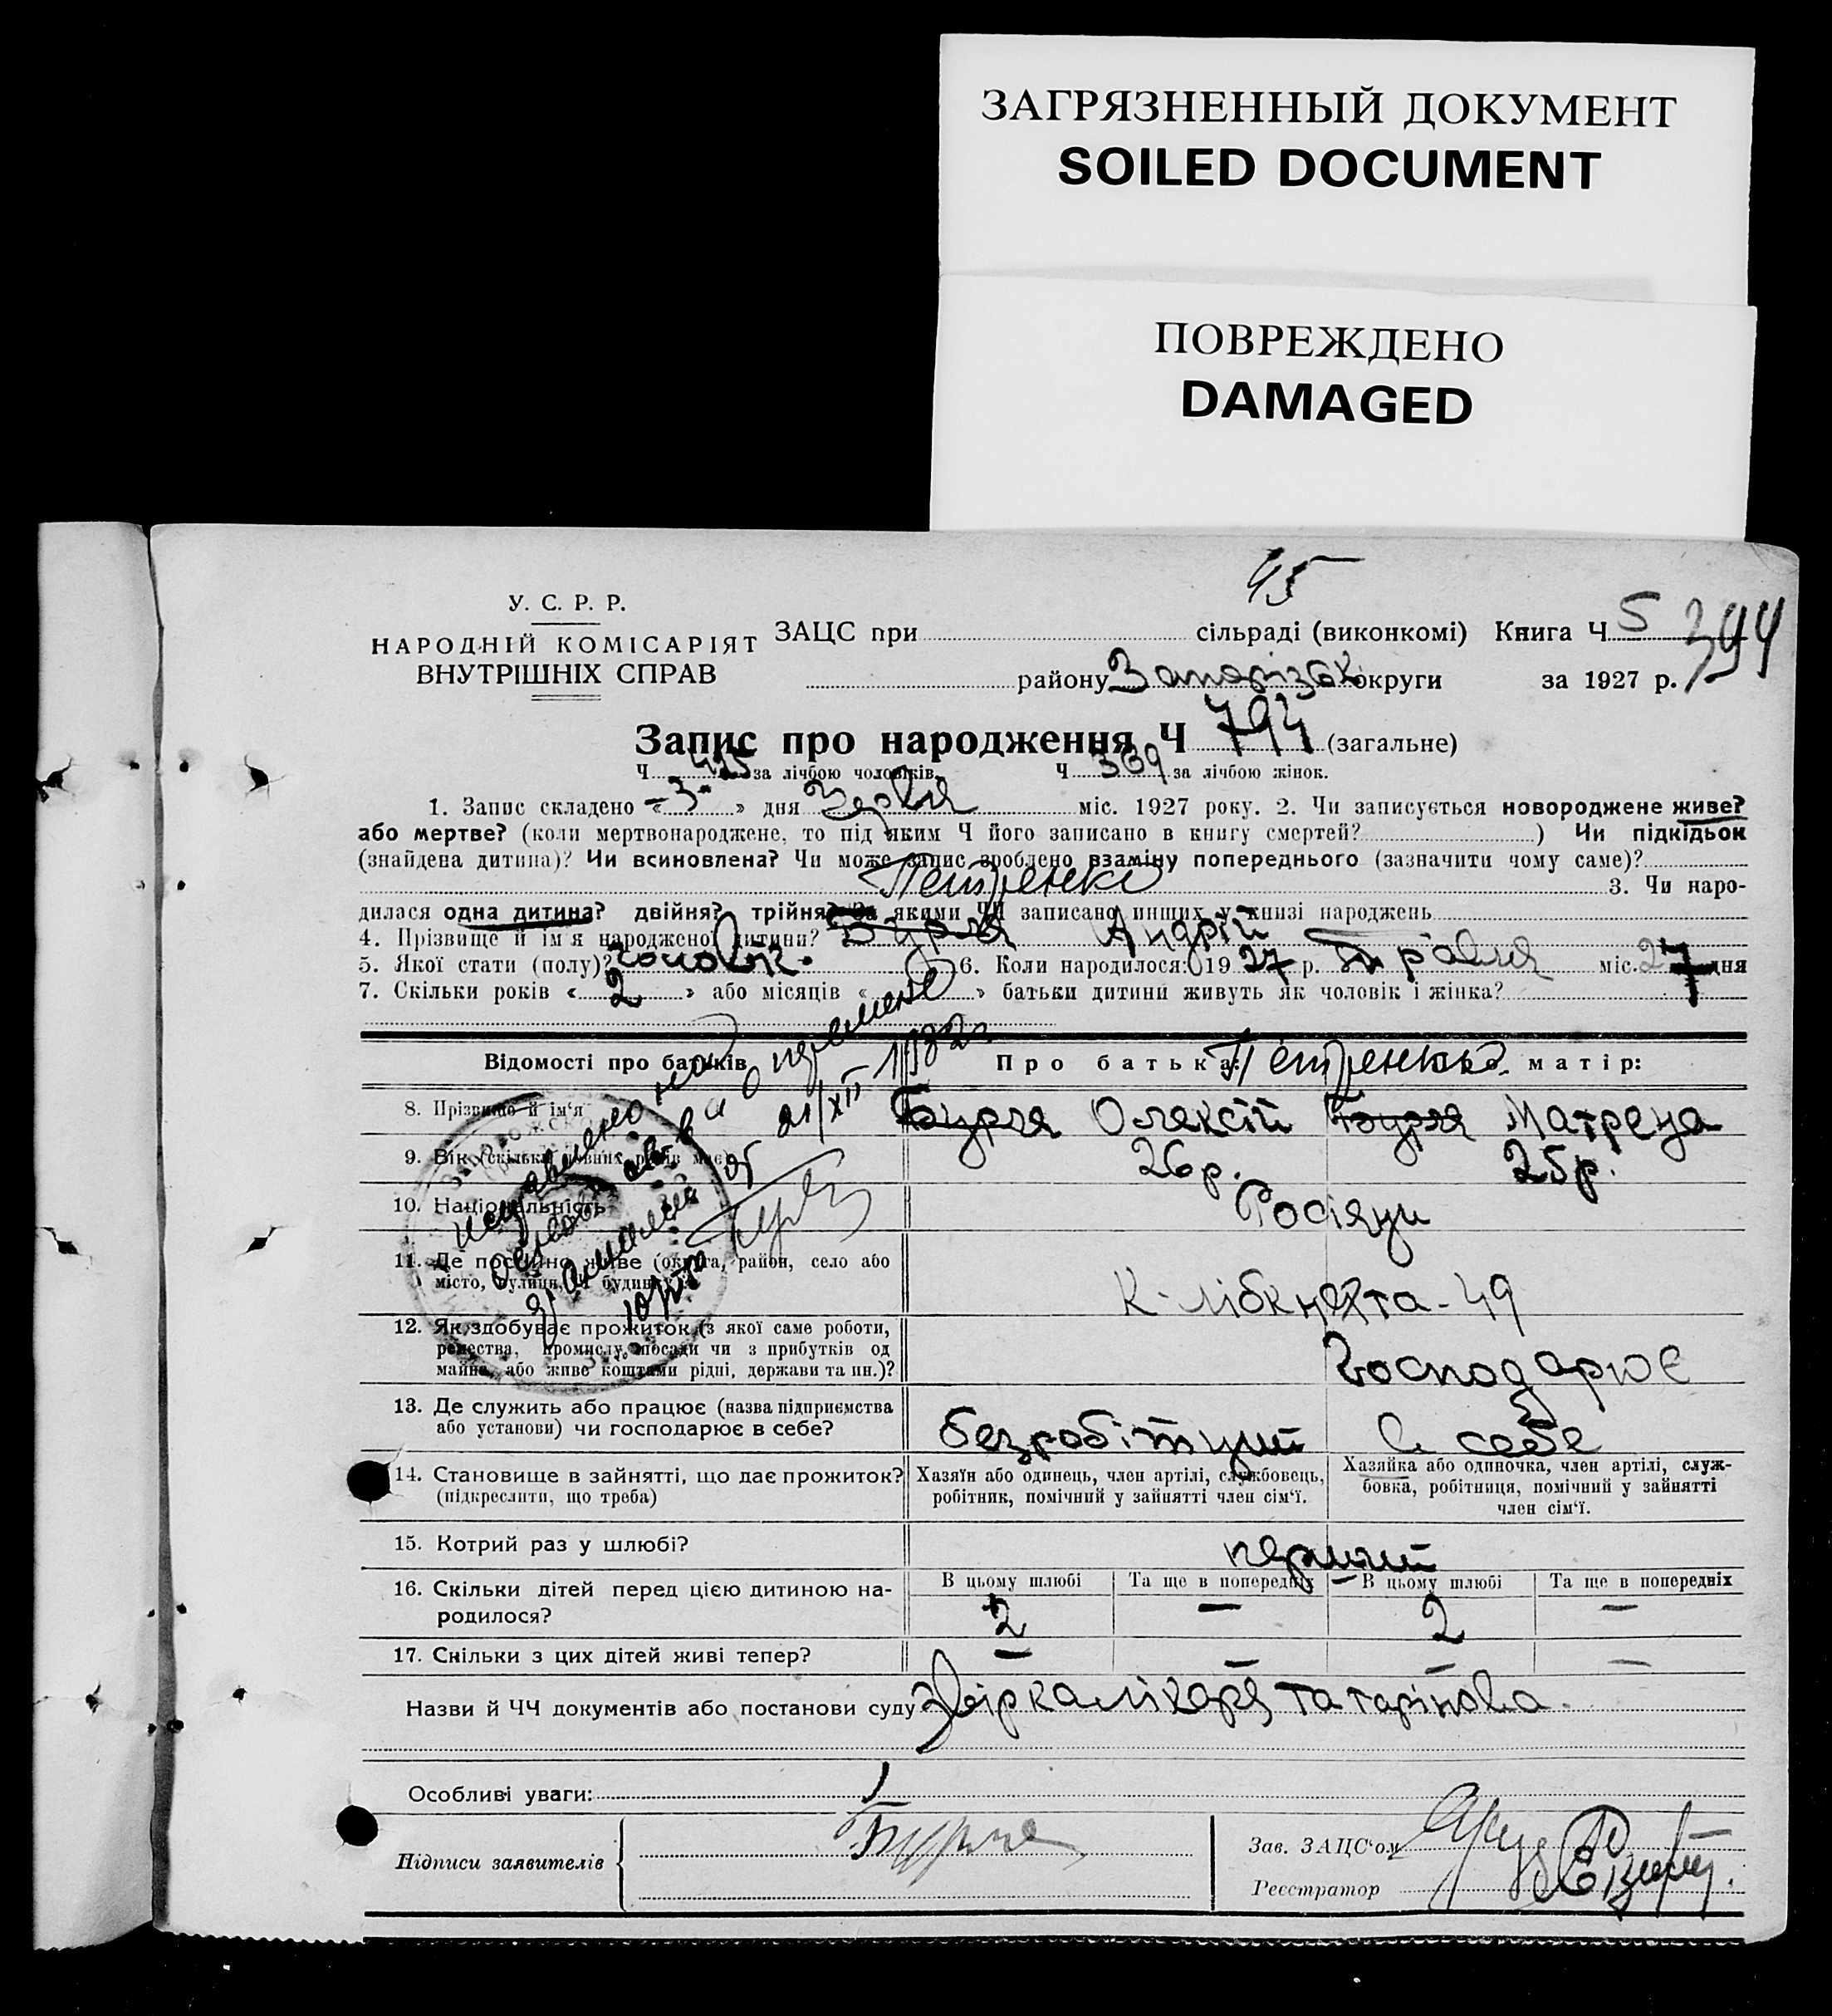 ЗАГРЯЗНЕННЫЙ ДОКУМЕНТ
SOILED DOCUMENT
ПОВРЕЖДЕНО
DAMAGED
45
У. С. Р. Р.
НАРОДНІЙ КОМІСАРІЯТ
ВНУТРІШНІХ СПРАВ
ЗАЦС при сільраді (виконкомі) Книга Ч 5 394
району Запорізьк округи за 1927 р.
Запис про народження Ч 794 (загальне)
Ч 425 за лічбою чоловіків. Ч 369 за лічбою жінок.
1. Запис складено « 3 » дня Червня міс. 1927 року. 2. Чи записується новороджене живе?
або мертве? (коли мертвонароджене, то під яким Ч його записано в книгу смертей? ) Чи підкідьок
(знайдена дитина)? Чи всиновлена? Чи може запис зроблено взаміну попереднього (зазначити чому саме)?
Петренко 3. Чи наро-
дилася одна дитина? двійня? трійня? За якими ЧЧ записано инших у книзі народжень
4. Прізвище й ім'я народженої дитини? Бурля Андрій
5. Якої стати (полу)? чоловік. 6. Коли народилося: 19 27 р. Травня міс. 27 дня
7. Скільки років « 2 » або місяців « » батьки дитини живуть як чоловік і жінка?
Відомості про батьків Про батька: Петренко матір:
8. Прізвище й ім'я Бурля Олексій Бурля Матрена
9. Вік (скільки повних років має) 26 р. 25 р.
10. Національність Росіяни
11. Де постійно живе (округа, район, село або
місто, вулиця, Ч будинку) К-лібкнехта-49
12. Як здобуває прожиток (з якої саме роботи,
ремества, промислу, посади чи з прибутків од
майна, або живе коштами рідні, держави та ин.)? Господарює
13. Де служить або працює (назва підприємства
або установи) чи господарює в себе? безробітний в себе
14. Становище в зайнятті, що дає прожиток?
(підкреслити, що треба)
Хазяїн або одинець, член артілі, службовець,
робітник, помічний у зайнятті член сім'ї.
Хазяйка або одиночка, член артілі, служ-
бовка, робітниця, помічний у зайнятті
член сім'ї.
исправлено на
основ
о перемене
фамилии от 21/XII 1932 г
15. Котрий раз у шлюбі? перший
16. Скільки дітей перед цією дитиною на-
родилося?
В цьому шлюбі Та ще в попередніх В цьому шлюбі Та ще в попередніх
2 — 2 —
17. Скільки з цих дітей живі тепер? — — — —
Назви й ЧЧ документів або постанови суду звірка лікаря Татарінова
Особливі уваги:
Підписи заявителів Бурля
Зав. ЗАЦС'ом
Реєстратор